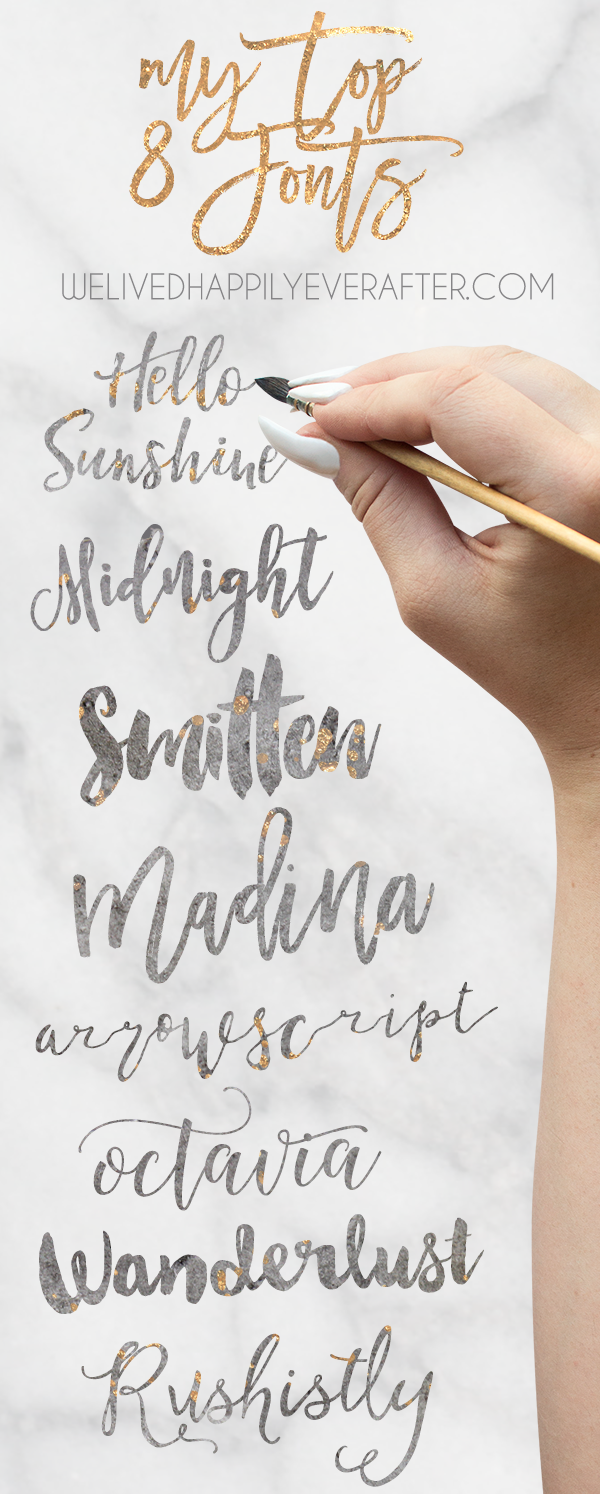 my top
8 Fonts
WELIVEDHAPPILYEVERAFTER.COM
Hello
Sunshine
Midnight
Smitten
Madina
arrowscript
octavia
Wanderlust
Rushistly